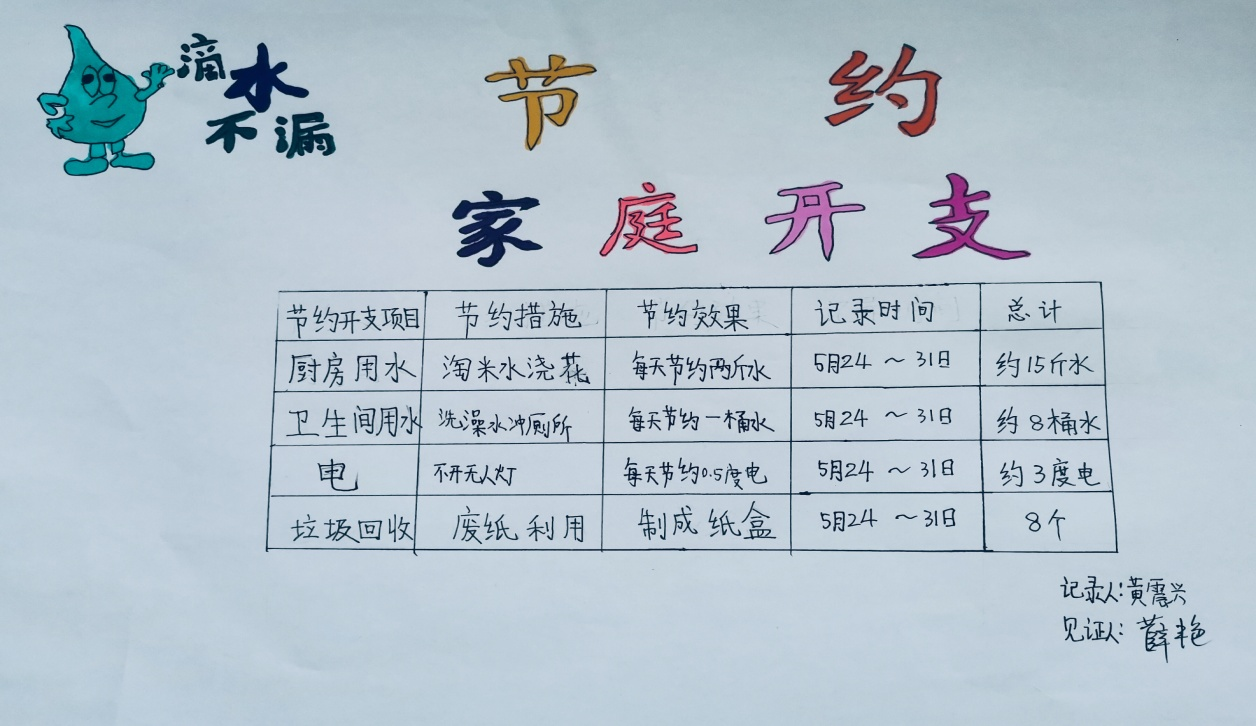 滴水
不漏
节约
家庭开支
节约开支项目 节约措施 节约效果 记录时间 总计
厨房用水 淘米水浇花 每天节约两斤水 5月24～31日 约15斤水
卫生间用水 洗澡水冲厕所 每天节约一桶水 5月24～31日 约8桶水
电 不开无人灯 每天节约0.5度电 5月24～31日 约3度电
垃圾回收 废纸利用 制成纸盒 5月24～31日 8个
记录人:黄震兴
见证人:薛艳